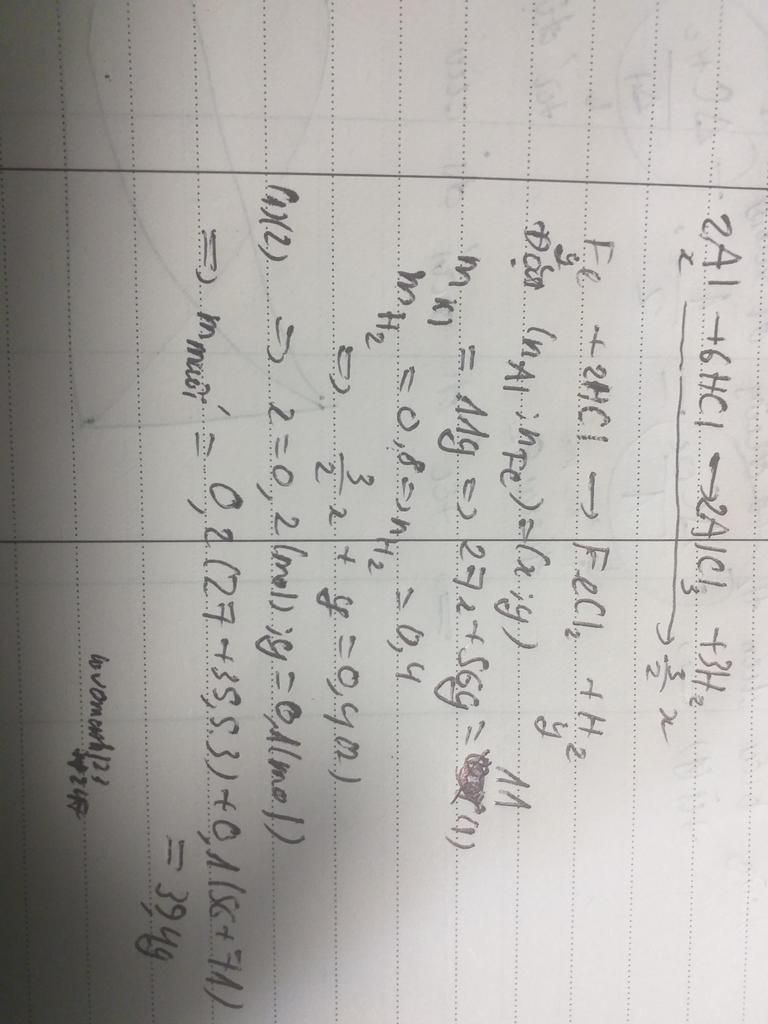 2Al + 6HCl → 2AlCl₃ + 3H₂
x → 3/2 x
Fe + 2HCl → FeCl₂ + H₂
y y
Đặt (nAl ; nFe) = (x ; y)
m KL = 11g => 27x + 56y = 11 (1)
mH₂ = 0,8 => nH₂ = 0,4
=> 3/2 x + y = 0,4 (2)
(1)(2) => x = 0,2 (mol) ; y = 0,1 (mol)
=> m muối = 0,2(27 + 35,5.3) + 0,1(56 + 71)
= 39,4g